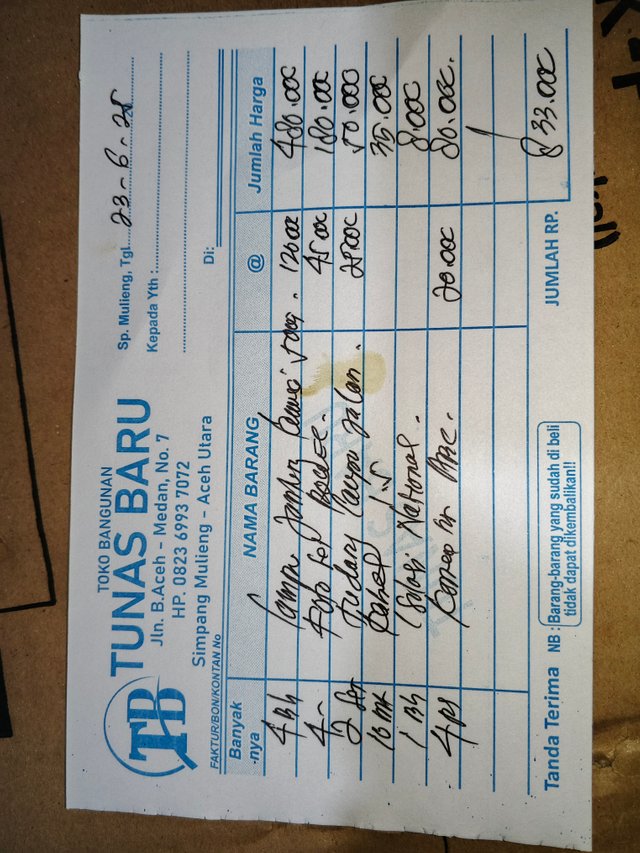 TB
TOKO BANGUNAN
TUNAS BARU
Jln. B.Aceh - Medan, No. 7
HP. 0823 6993 7072
Simpang Mulieng - Aceh Utara
Sp. Mulieng, Tgl. 23-6-25
Kepada Yth :
Di:
FAKTUR/BON/KONTAN No
Banyak-nya NAMA BARANG @ Jumlah Harga
4 Bh Lampu 120.000 480.000
4 - 45.000 180.000
2 Lampu Jalan. 25.000 50.000
10 Mt Kabel 35.000
1 Bh National. 8.000
4 20.000 80.000.
Tanda Terima
NB : Barang-barang yang sudah di beli
tidak dapat dikembalikan!!
JUMLAH RP. 833.000